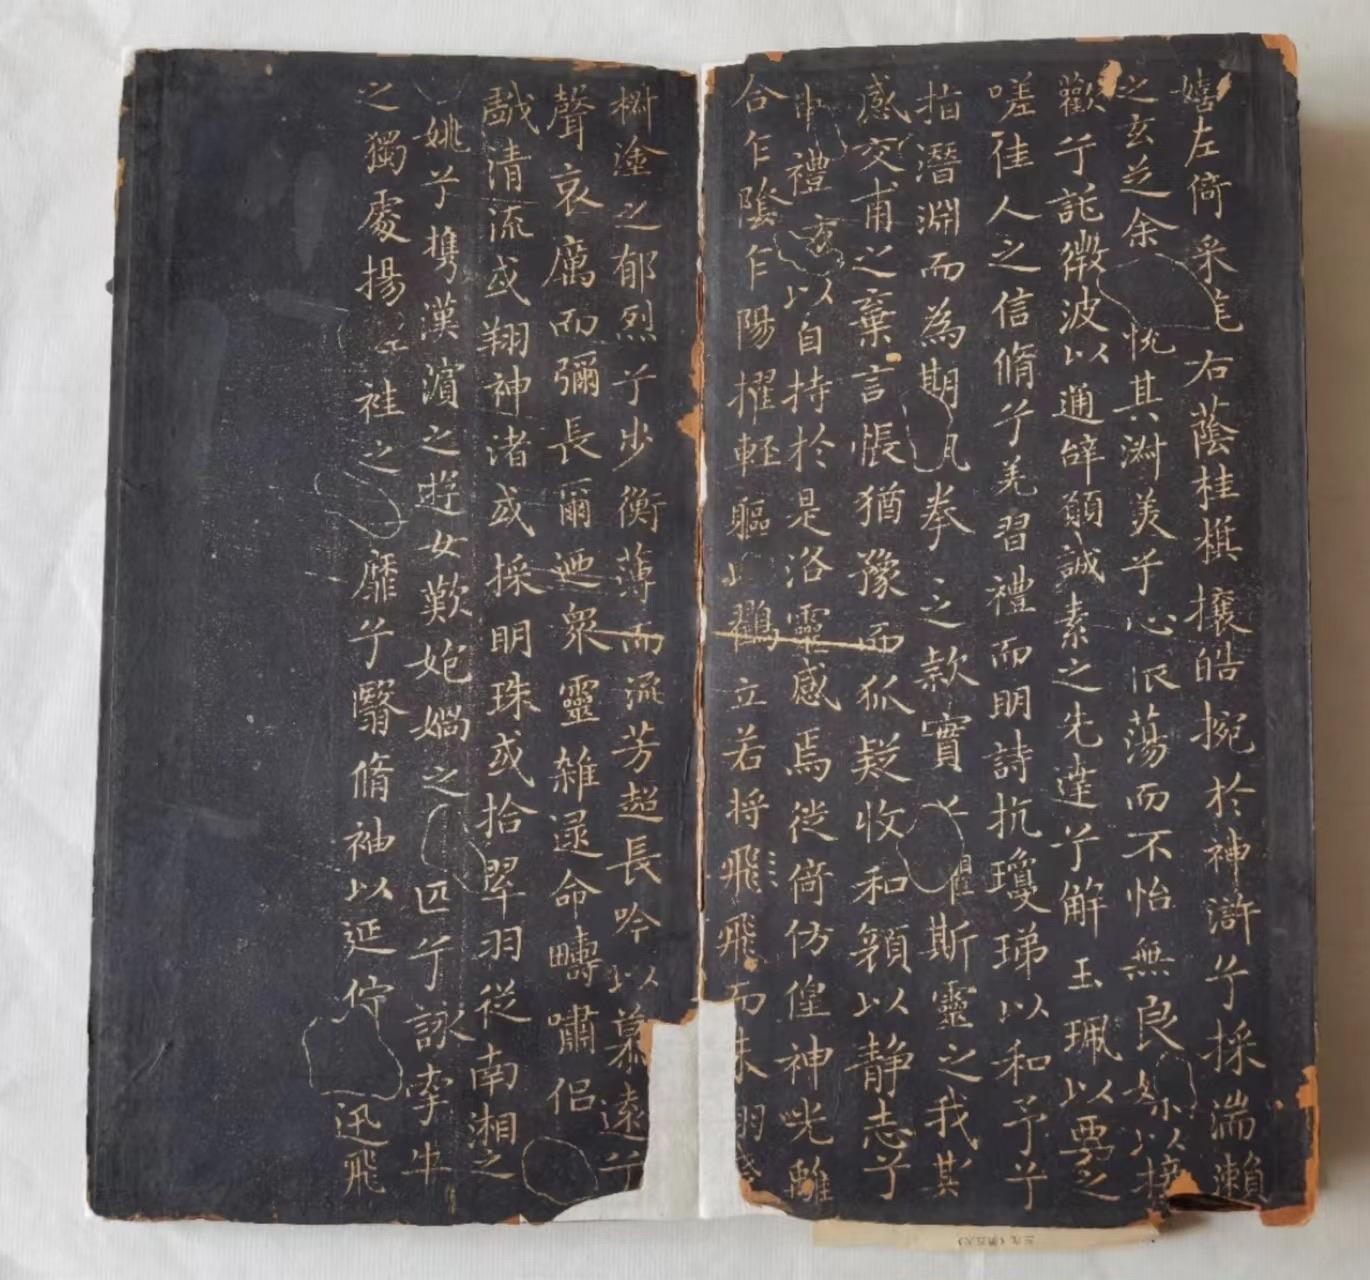 嬉左倚采旄右蔭桂棋攘皓捥於神滸兮採湍瀨
之玄芝余悦其淑美兮心振蕩而不怡無良以接
歡兮託微波以通辝願誠素之先達兮解玉珮以要之
嗟佳人之信脩兮羌習禮而明詩抗瓊珶以和予兮
指潛淵而為期拳之款實兮懼斯靈之我其
感交甫之棄言悵猶豫而狐疑收和顏以静志兮
申禮以自持於是洛靈感焉徙倚仿偟神光離
合乍陰乍陽擢輕軀以鶴立若将飛飛而未翔
樹塗之郁烈兮步衡薄而流芳超長吟以慕遠兮
聲哀厲而彌長爾迺眾靈雜遝命疇嘯侣
戲清流或翔神渚或採明珠或拾翠羽從南湘之
姚兮攜漢濱之游女歎匏媧之匹兮詠牽牛
之獨處揚袿之靡兮翳脩袖以延佇迅飛